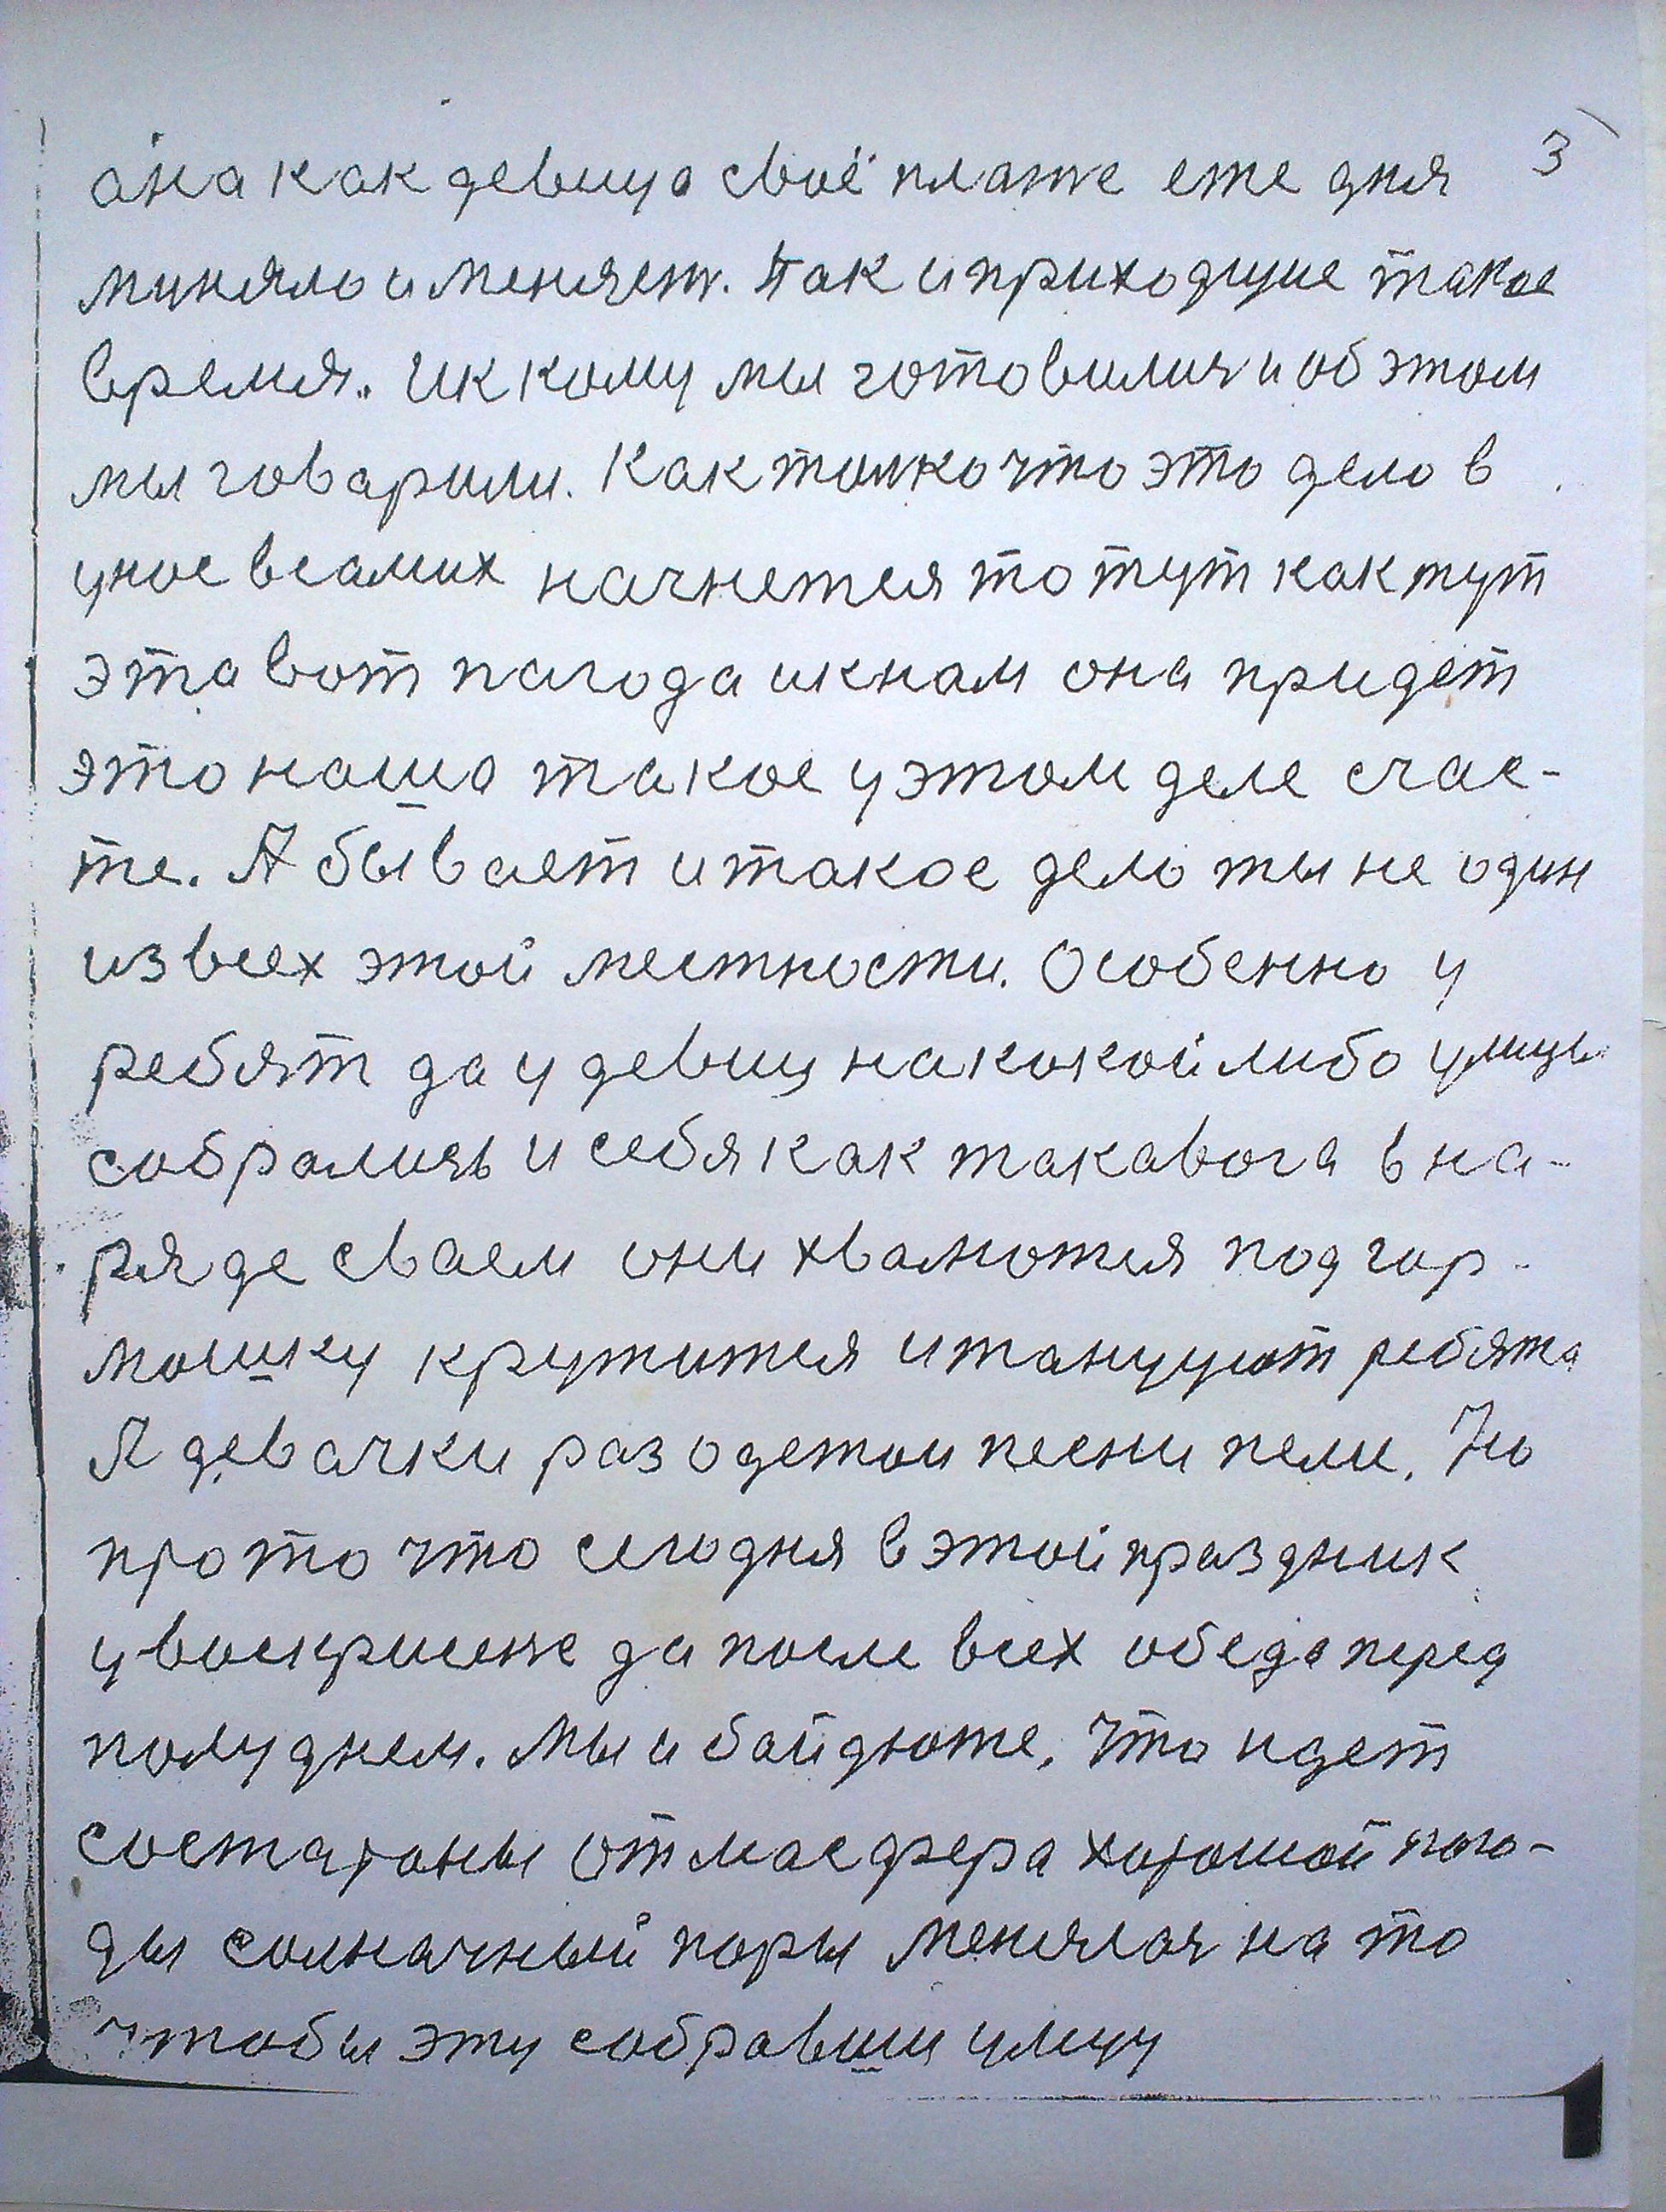 3
она как девица своё плате еже дня
миняло и меняет. Так и приходшие такое
время. И к кому мы готовилися и об этом
мы говарили. Как толко что это дело в
унос в самих начнется то тут как тут
эта вот пагода и к нам она придет
это наша такое у этом деле счас-
те. А бывает и такое дело ты не один
из всех этой местности. Особенно у
ребят да у девиц на какой либо улицы
собралися и себя как такавога в на-
ряде сваем они хвалются под гар-
мошку крутится и танцуют ребята
А девачки раз одетои песни пели. Но
про то что сегодня в этой праздник
у воскрисене да после всех обеда перед
полуднем. Мы и байдюже, что идет
состароны отмасфера хорошой пого-
ды солначный поры менялася на то
чтобы эту собравши улицу